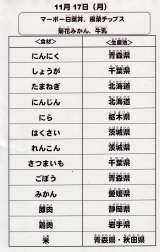 11月 17日（月）
マーボー白菜丼、根菜チップス
菊花みかん、牛乳
＜食材＞ ＜生産地＞
にんにく 青森県
しょうが 千葉県
たまねぎ 北海道
にんじん 北海道
にら 栃木県
はくさい 茨城県
れんこん 茨城県
さつまいも 千葉県
ごぼう 青森県
みかん 愛媛県
豚肉 静岡県
鶏肉 岩手県
米 青森県・秋田県